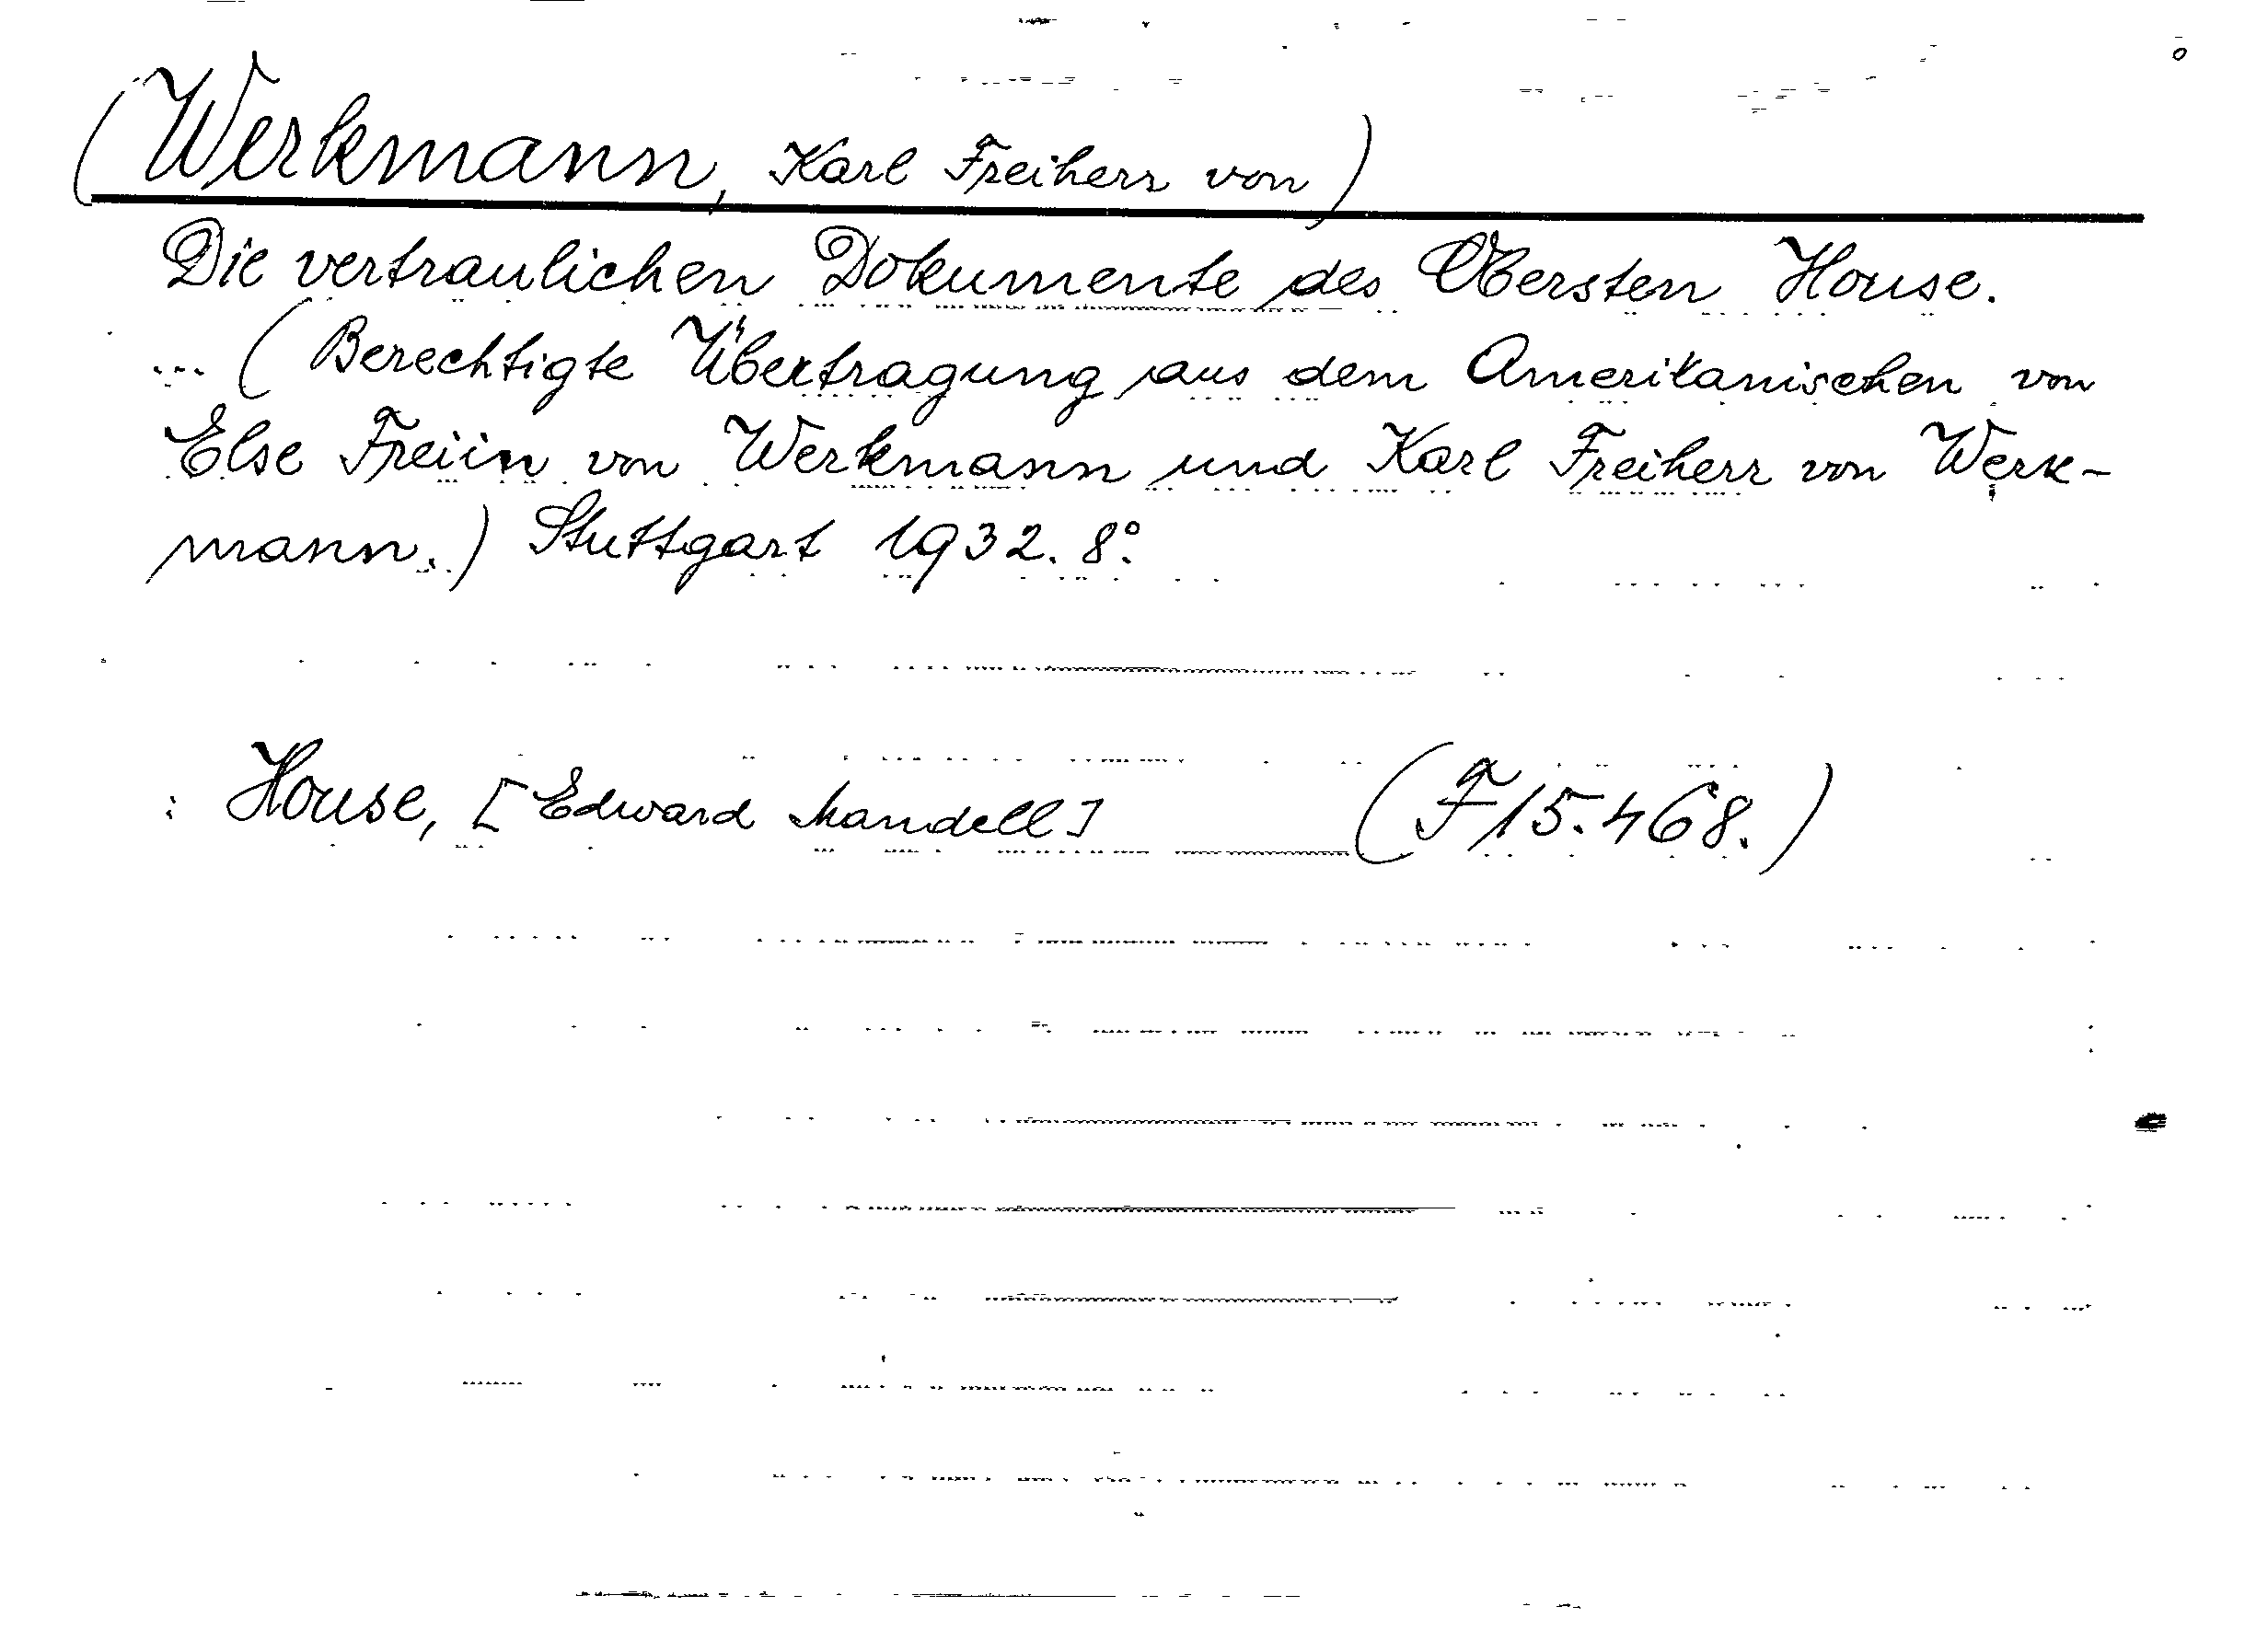 (Werkmann, Karl Freiherr von)
Die vertraulichen Dokumente des Obersten House.
... (Berechtigte Übertragung aus dem Amerikanischen von
Else Freiin von Werkmann und Karl Freiherr von Werk-
mann.) Stuttgart 1932. 8°.
: House, [Edward Mandell] (F 15.468.)